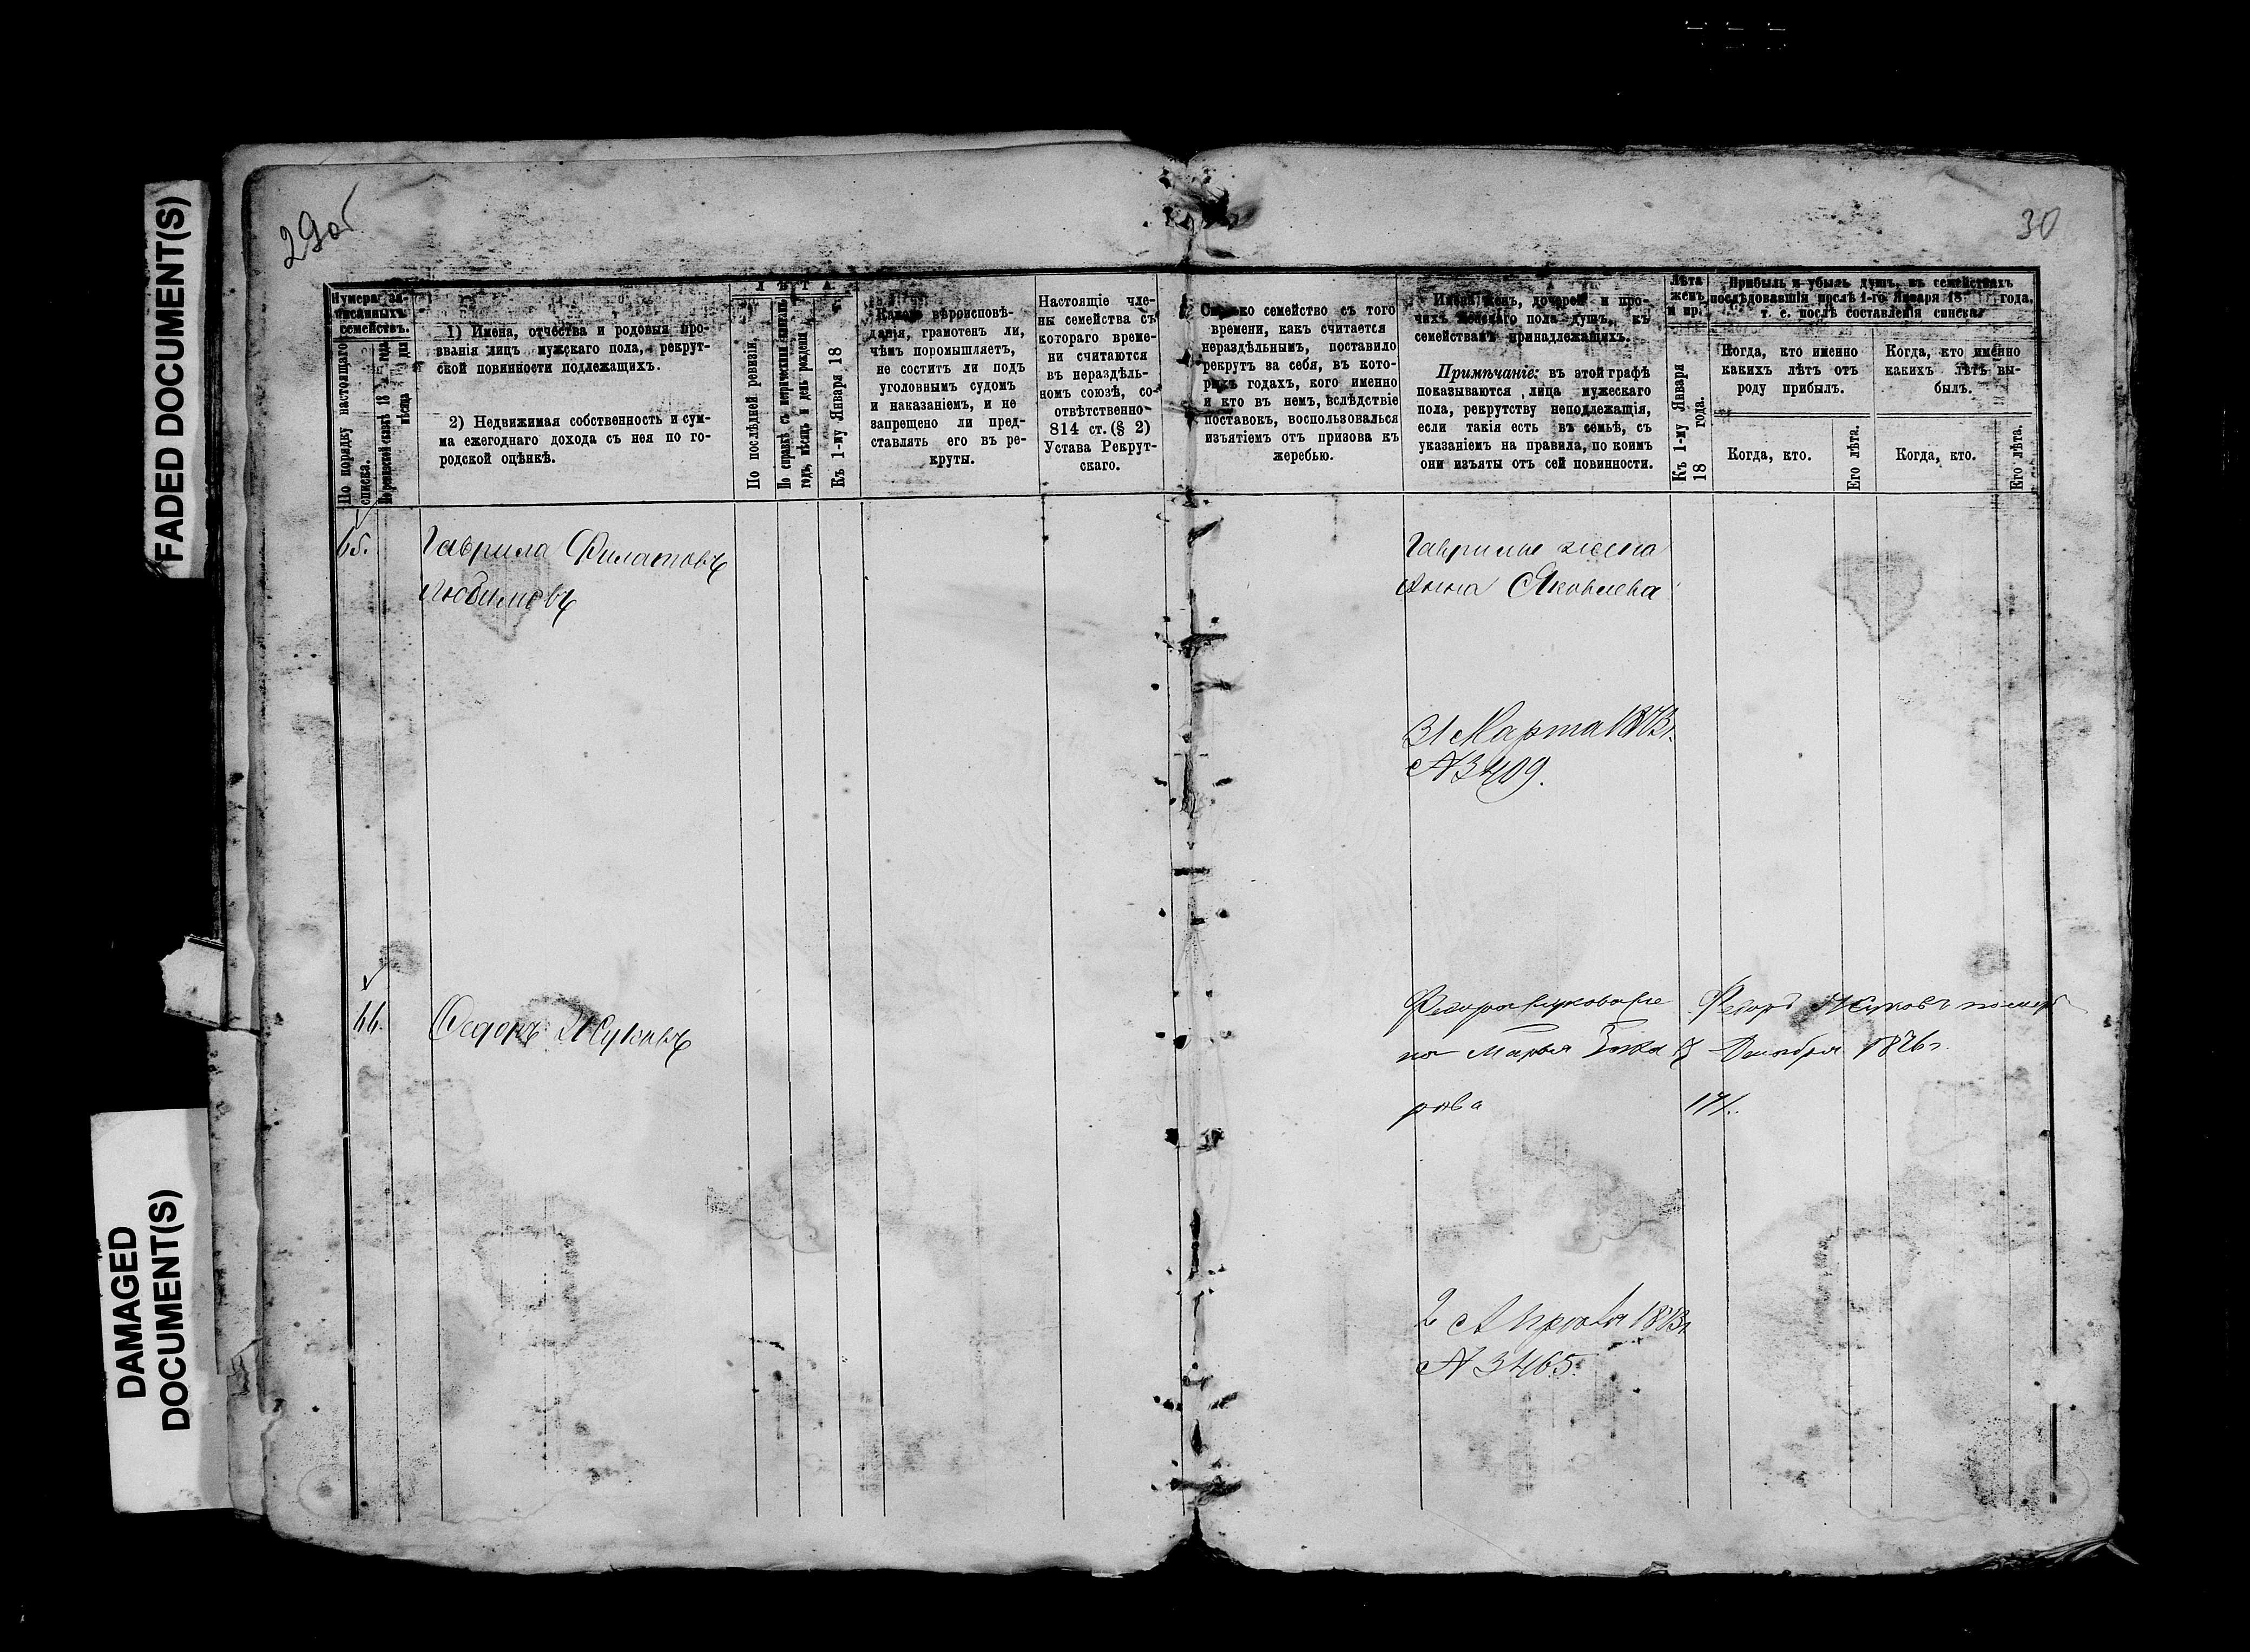 FADED DOCUMENT(S)
DAMAGED
DOCUMENT(S)
29об
30
Нумера за-
писанныхъ
семействъ.
По порядку настоящаго
списка.
По ревизской сказкѣ 18 года
мѣсяца дня
1) Имена, отчества и родовыя про-
званія лицъ мужскаго пола, рекрут-
ской повинности подлежащихъ.
2) Недвижимая собственность и сум-
ма ежегоднаго дохода съ нея по го-
родской оцѣнкѣ.
ЛѢТА.
По послѣдней ревизіи.
По справкѣ съ метрическими книгами
годъ, мѣсяцъ и день рожденія
Къ 1-му Января 18
Какого вѣроисповѣ-
данія, грамотенъ ли,
чѣмъ поромышляетъ,
не соститъ ли подъ
уголовнымъ судомъ
и наказаніемъ, и не
запрещено ли пред-
ставлять его въ ре-
круты.
Настоящіе чле-
ны семейства съ
котораго време-
ни считаются
въ нераздѣль-
номъ союзѣ, со-
отвѣтственно
814 ст. (§ 2)
Устава Рекрут-
скаго.
Сколько семейство съ того
времени, какъ считается
нераздѣльнымъ, поставило
рекрутъ за себя, въ кото-
рыхъ годахъ, кого именно
и кто въ немъ, вслѣдствіе
поставокъ, воспользовался
изъятіемъ отъ призова къ
жеребью.
Имена женъ, дочерей и про-
чихъ женскаго пола душъ, къ
семействамъ принадлежащихъ.
Примѣчаніе: въ этой графѣ
показываются лица мужескаго
пола, рекрутству неподлежащія,
если такія есть въ семьѣ, съ
указаніемъ на правила, по коимъ
они изъяты отъ сей повинности.
Лѣта
женъ
и пр.
Къ 1-му Января
18 года.
Прибыль и убыль душъ, въ семействахъ
послѣдовавшія послѣ 1-го Января 18 года,
т. е. послѣ составленія списка
Когда, кто именно
какихъ лѣтъ отъ
роду прибылъ.
Когда, кто именно
какихъ лѣтъ вы-
былъ.
Когда, кто.
Его лѣта.
Когда, кто.
Его лѣта.
65.
Гаврила Филатовъ
Любимовъ
Гаврилы жена
Анна Яковлева
31 Марта 1873г.
№ 3409.
66.
Федоръ Жуковъ
на Марья
рова
Федоръ Жуковъ померъ
Декабря 1876г.
171.
2 Апрѣля 1873г
№ 3465.